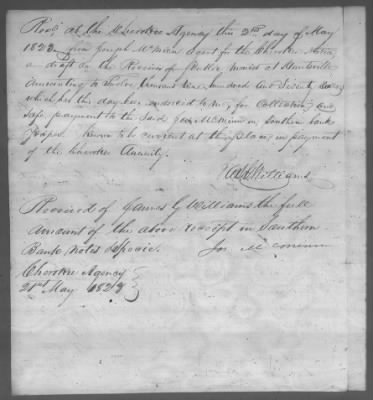 Recd at the Cherokee Agency this 2nd day of May
1823. from Joseph McMinn agent for the Cherokee Nation
a draft on the Receiver of Public monies at Huntsville
Amounting to Twelve thousand hundred and Seventy
which has this day been endorsed to me, for Collection, and
safe payment to the said Jos. McMinn in Southern bank
Paper. Known to be current at this place, in payment
of the Cherokee Annuity.
Williams
Received of James G Williams the full
Amount of the above receipt in Southern
Bank Notes Specie. Jos. McMinn
Cherokee Agency
21st May 1823